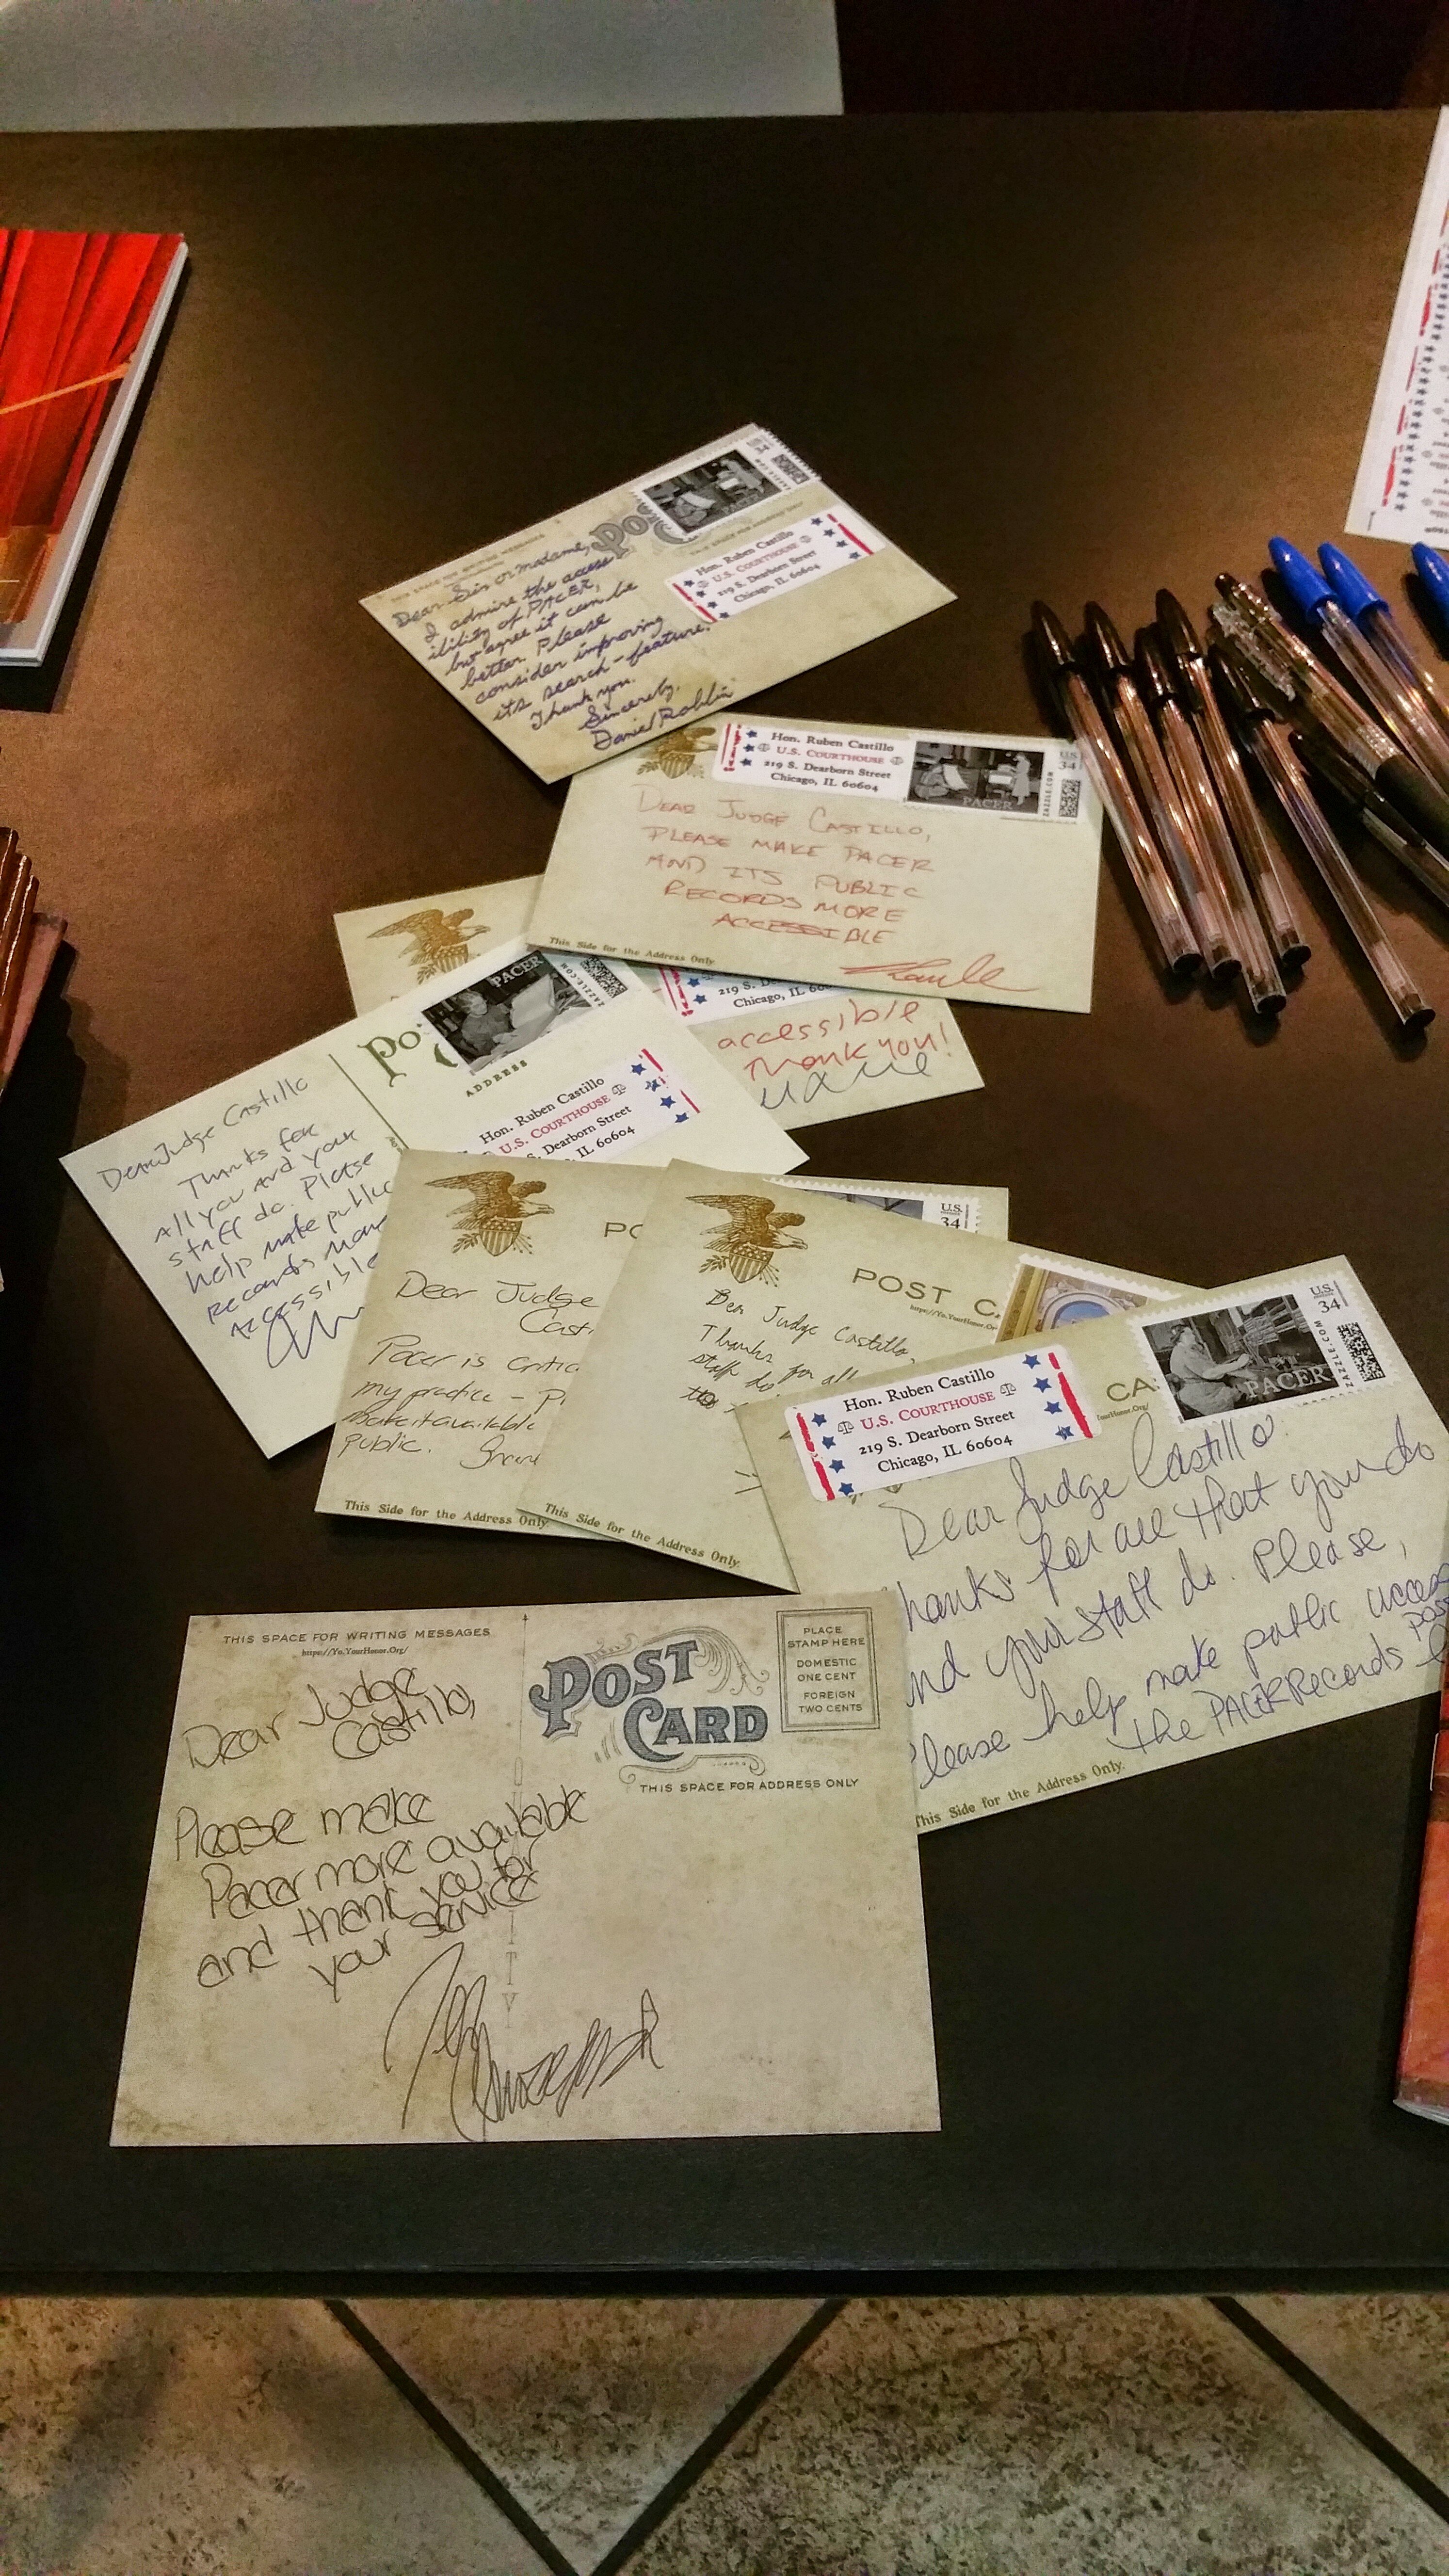 THIS SPACE FOR WRITING MESSAGES
Dear Sir or madame,
I admire the access
ibility of PACER,
but agree it can be
better. Please
consider improving
its search-feature.
Thank you.
Sincerely,
Daniel
PACER
ZAZZLE.COM
Hon. Ruben Castillo
U.S. COURTHOUSE
219 S. Dearborn Street
Chicago, IL 60604
Hon. Ruben Castillo
U.S. COURTHOUSE
219 S. Dearborn Street
Chicago, IL 60604
PACER
U.S.
34
ZAZZLE.COM
DEAR JUDGE CASTILLO,
PLEASE MAKE PACER
AND ITS PUBLIC
RECORDS MORE
ACCESSIBLE
This Side for the Address Only.
219 S. D
Chicago, IL 60
accessible
Thank you!
PACER
ZAZZLE.COM
Po
ADDRESS
Hon. Ruben Castillo
U.S. COURTHOUSE
S. Dearborn Street
, IL 60604
Dear Judge Castillo
Thanks for
all you and your
staff do. Please
help make public
records more
accessible
PO
Dear Judge
Cast
Pacer is critic
my practice - P
make it available
public.
This Side for the Address Only.
U.S.
34
POST C
Dear Judge Castillo,
Thanks for all
staff do.
This Side for the Address Only.
Hon. Ruben Castillo
U.S. COURTHOUSE
219 S. Dearborn Street
Chicago, IL 60604
CA
PACER
U.S.
34
ZAZZLE.COM
Dear Judge Castillo:
hanks for all that you do
nd your staff do. Please,
lease help make public access
the PACER Records
This Side for the Address Only.
THIS SPACE FOR WRITING MESSAGES
https://Yo.YourHonor.Org/
POST
CARD
PLACE
STAMP HERE
DOMESTIC
ONE CENT
FOREIGN
TWO CENTS
THIS SPACE FOR ADDRESS ONLY
Dear Judge
Castillo,
Please make
Pacer more available
and thank you for
your service